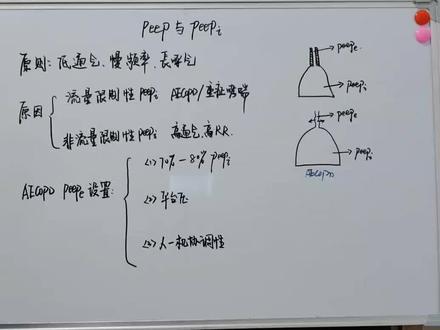 PEEP 与 PEEPi
原则: 低通气、慢频率、长呼气
原因
流量限制性 PEEPi AECOPD/重症哮喘
非流量限制性 PEEPi 高通气、高RR.
AECOPD PEEPe 设置:
(1) 70% - 80% PEEPi
(2) 平台压
(3) 人-机协调性
PEEPe
PEEPi
PEEPe
PEEPi
AECOPD